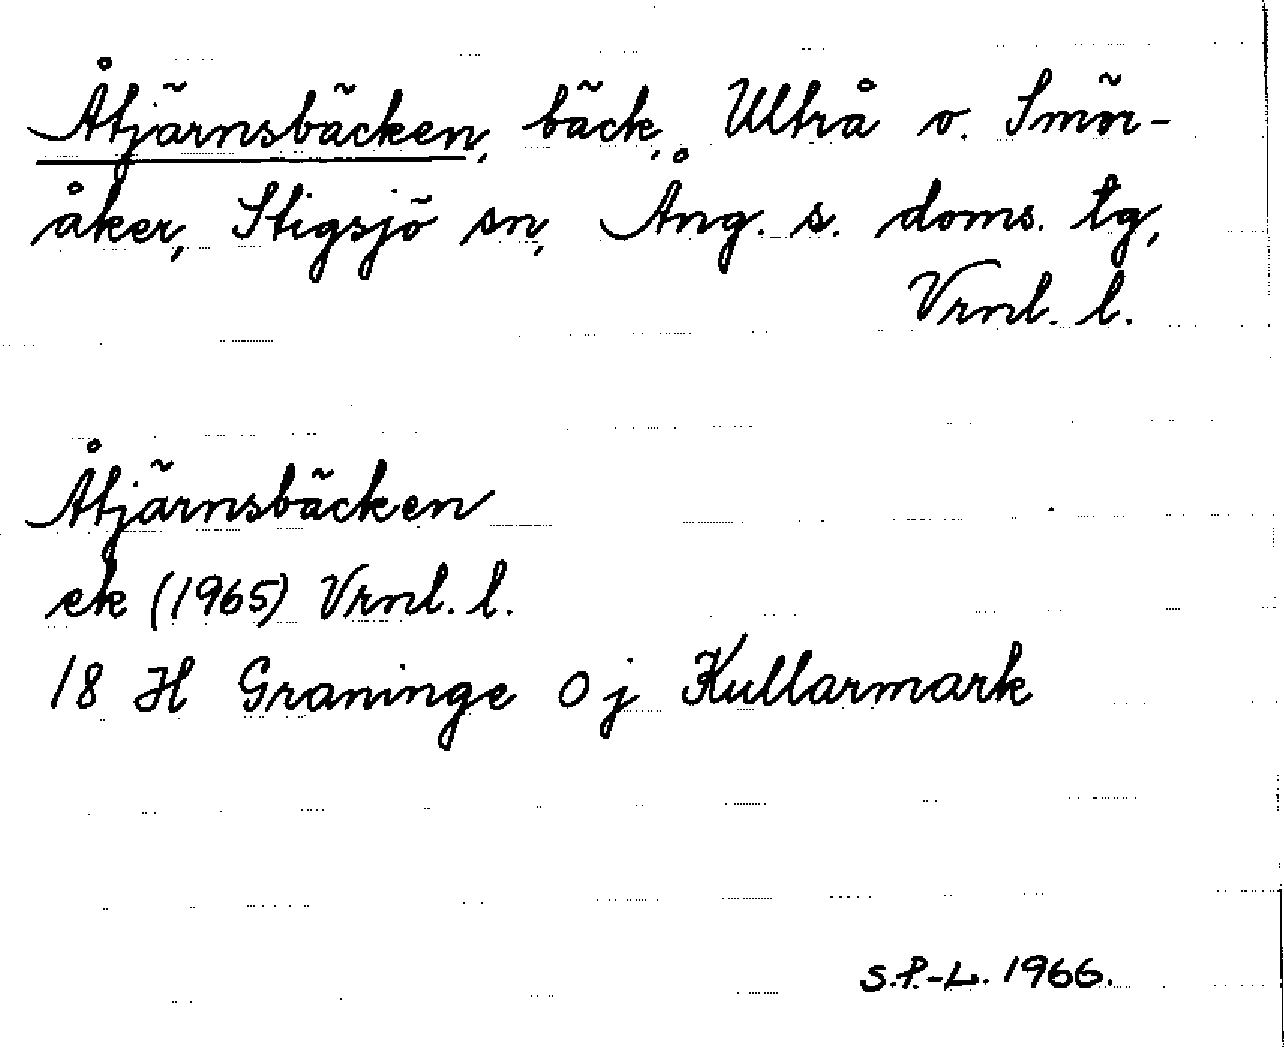 Åtjärnsbäcken, bäck, Ultrå o. Smör-
åker, Stigsjö sn, Ång. s. doms. tg,
Vrnl. l.
Åtjärnsbäcken
ek (1965) Vrnl. l.
18 H Graninge 0 j Kullarmark
S.P.-L. 1966.